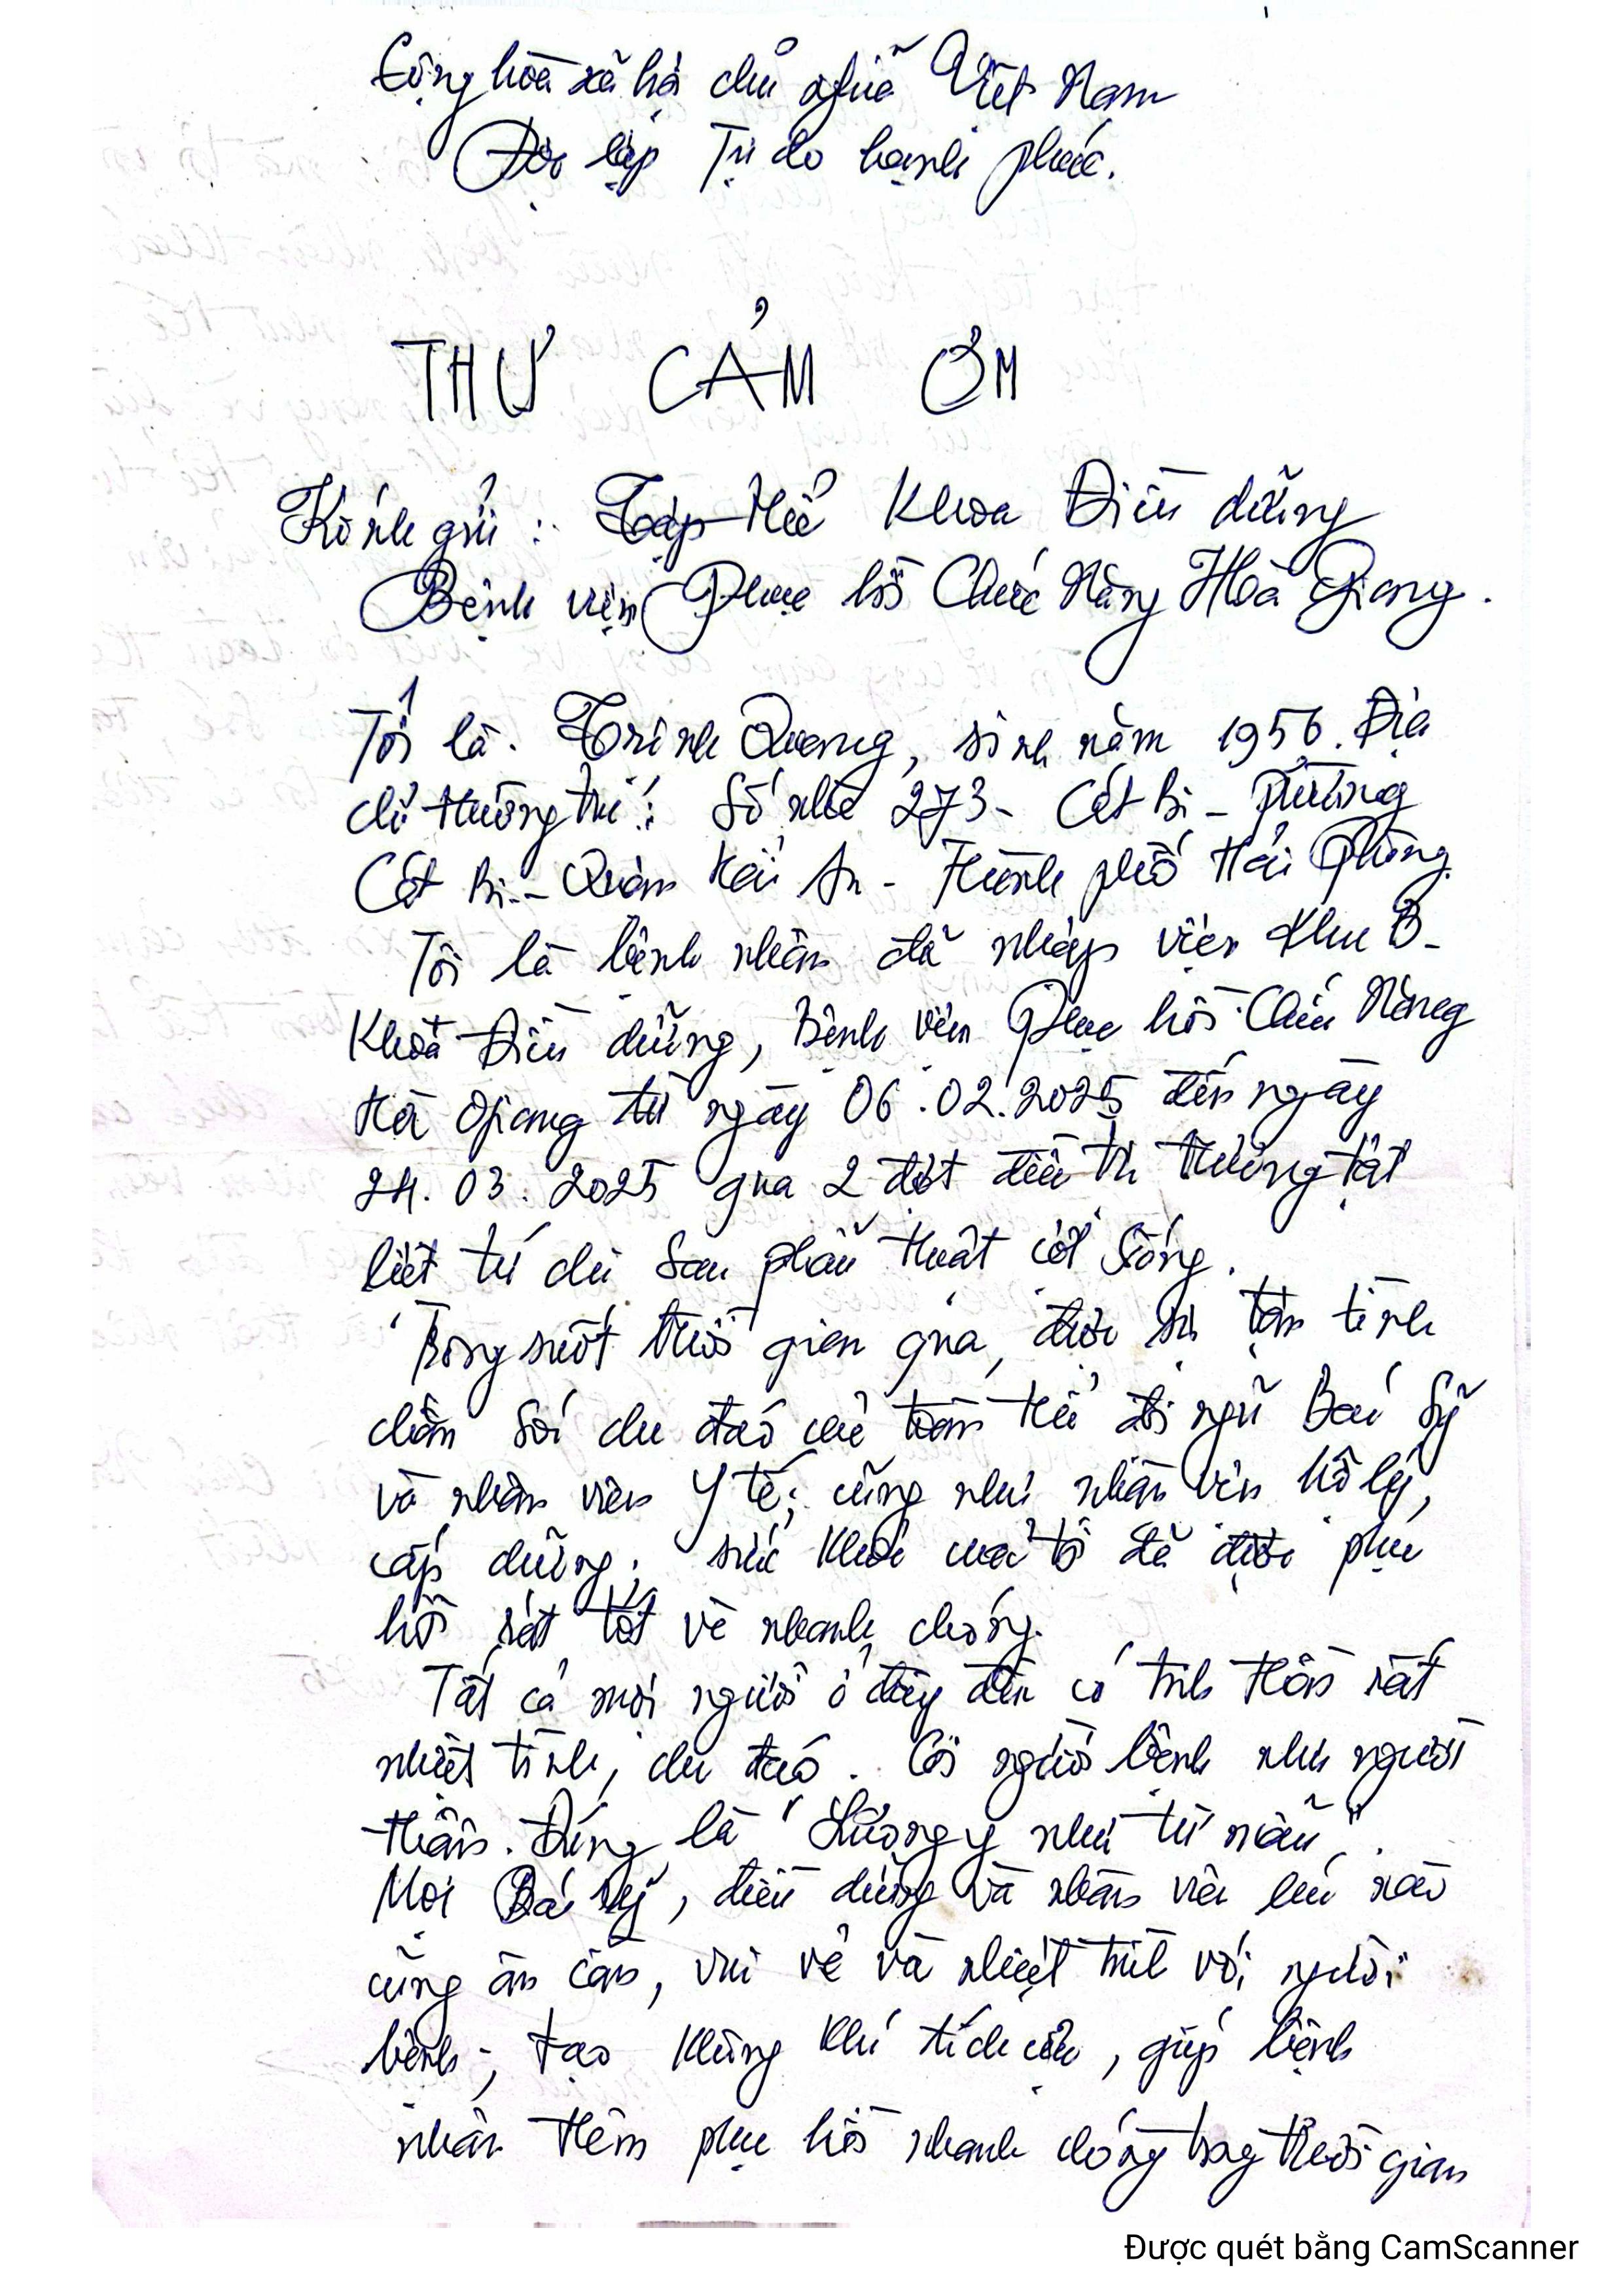 Cộng hòa xã hội chủ nghĩa Việt Nam
Độc lập Tự do hạnh phúc.
THƯ CẢM ƠN
Kính gửi : Tập thể Khoa Điều dưỡng
Bệnh viện Phục hồi Chức Năng Hoà Giang.
Tôi là. Trịnh Quang, sinh năm 1956. Địa
chỉ thường trú : Số nhà 273 - Cát Bi - Phường
Cát Bi - Quận Hải An - Thành phố Hải Phòng.
Tôi là bệnh nhân đã nhập viện Khu B -
Khoa Điều dưỡng, Bệnh viện Phục hồi Chức Năng
Hà Giang từ ngày 06.02.2025 đến ngày
24.03.2025 qua 2 đợt điều trị thương tật
liệt tứ chi sau phẫu thuật cột sống.
Trong suốt thời gian qua, được sự tận tình
chăm sóc chu đáo của toàn thể đội ngũ Bác Sỹ
và nhân viên Y tế; cũng như nhân viên hộ lý,
cấp dưỡng; sức khỏe của tôi đã được phục
hồi rất tốt và nhanh chóng.
Tất cả mọi người ở đây đều có tinh thần rất
nhiệt tình, chu đáo. Coi người bệnh như người
thân. Đúng là "Lương y như từ mẫu".
Mọi Bác sỹ, điều dưỡng và nhân viên lúc nào
cũng ân cần, vui vẻ và nhiệt tình với người
bệnh; tạo không khí tích cực, giúp bệnh
nhân thêm phục hồi nhanh chóng trong thời gian
Được quét bằng CamScanner